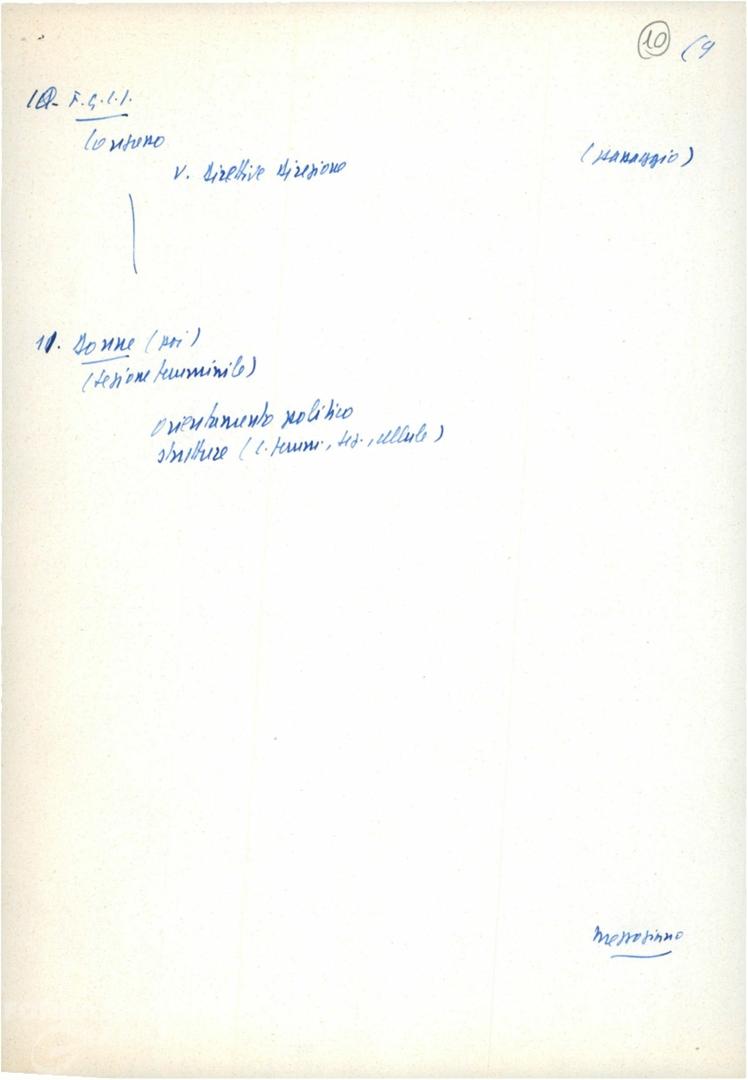 10 (9
10- F.G.C.I.
Consenso
V. Direttive Direzione
11. Donne (poi)
(sezione femminile)
orientamento politico
strutture (c. femm., sez., cellule)
Mezzogiorno